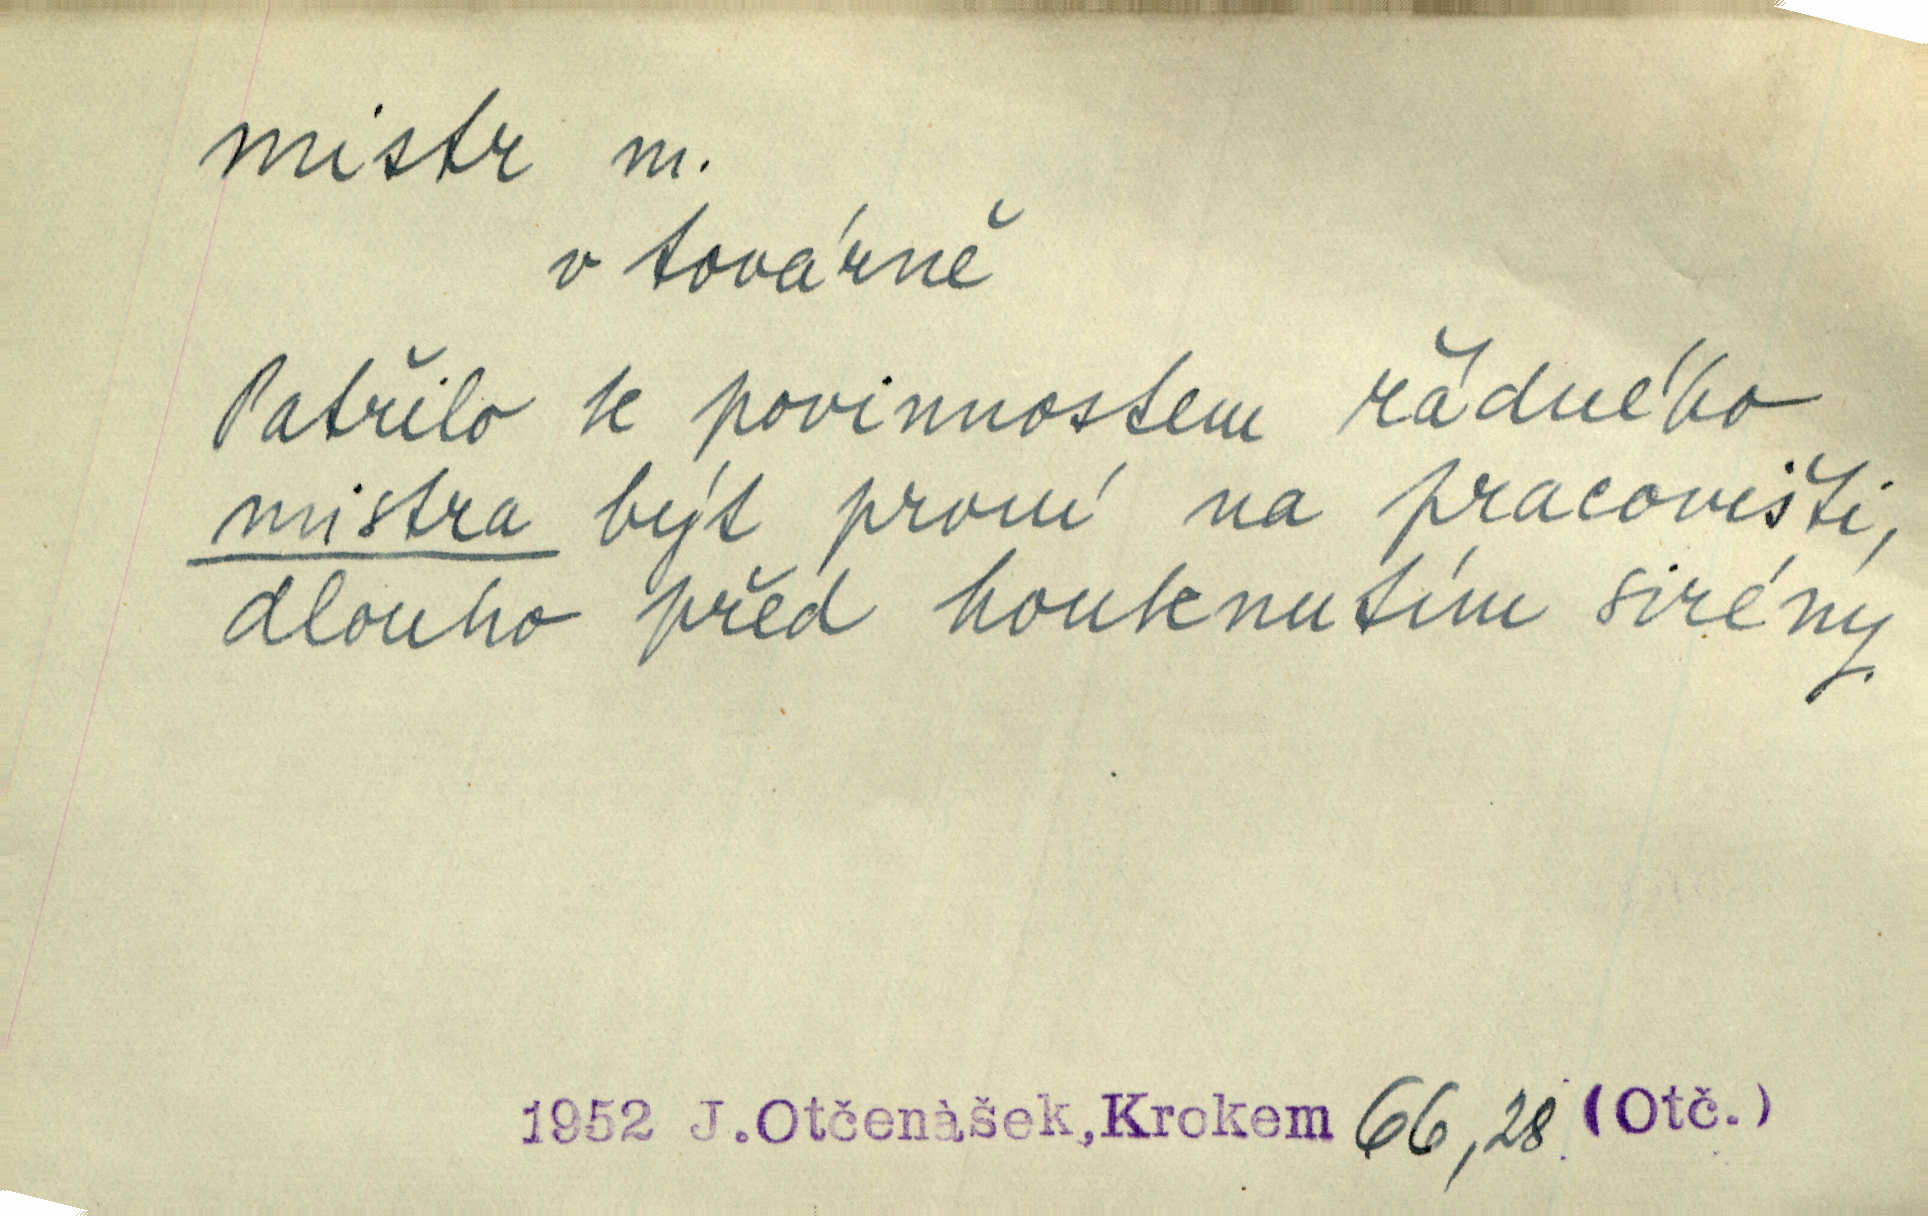 mistr m.
v továrně
Patřilo k povinnostem řádného
mistra být první na pracovišti,
dlouho před houknutím sirény
1952 J.Otčenášek,Krokem 66,28 (Otč.)